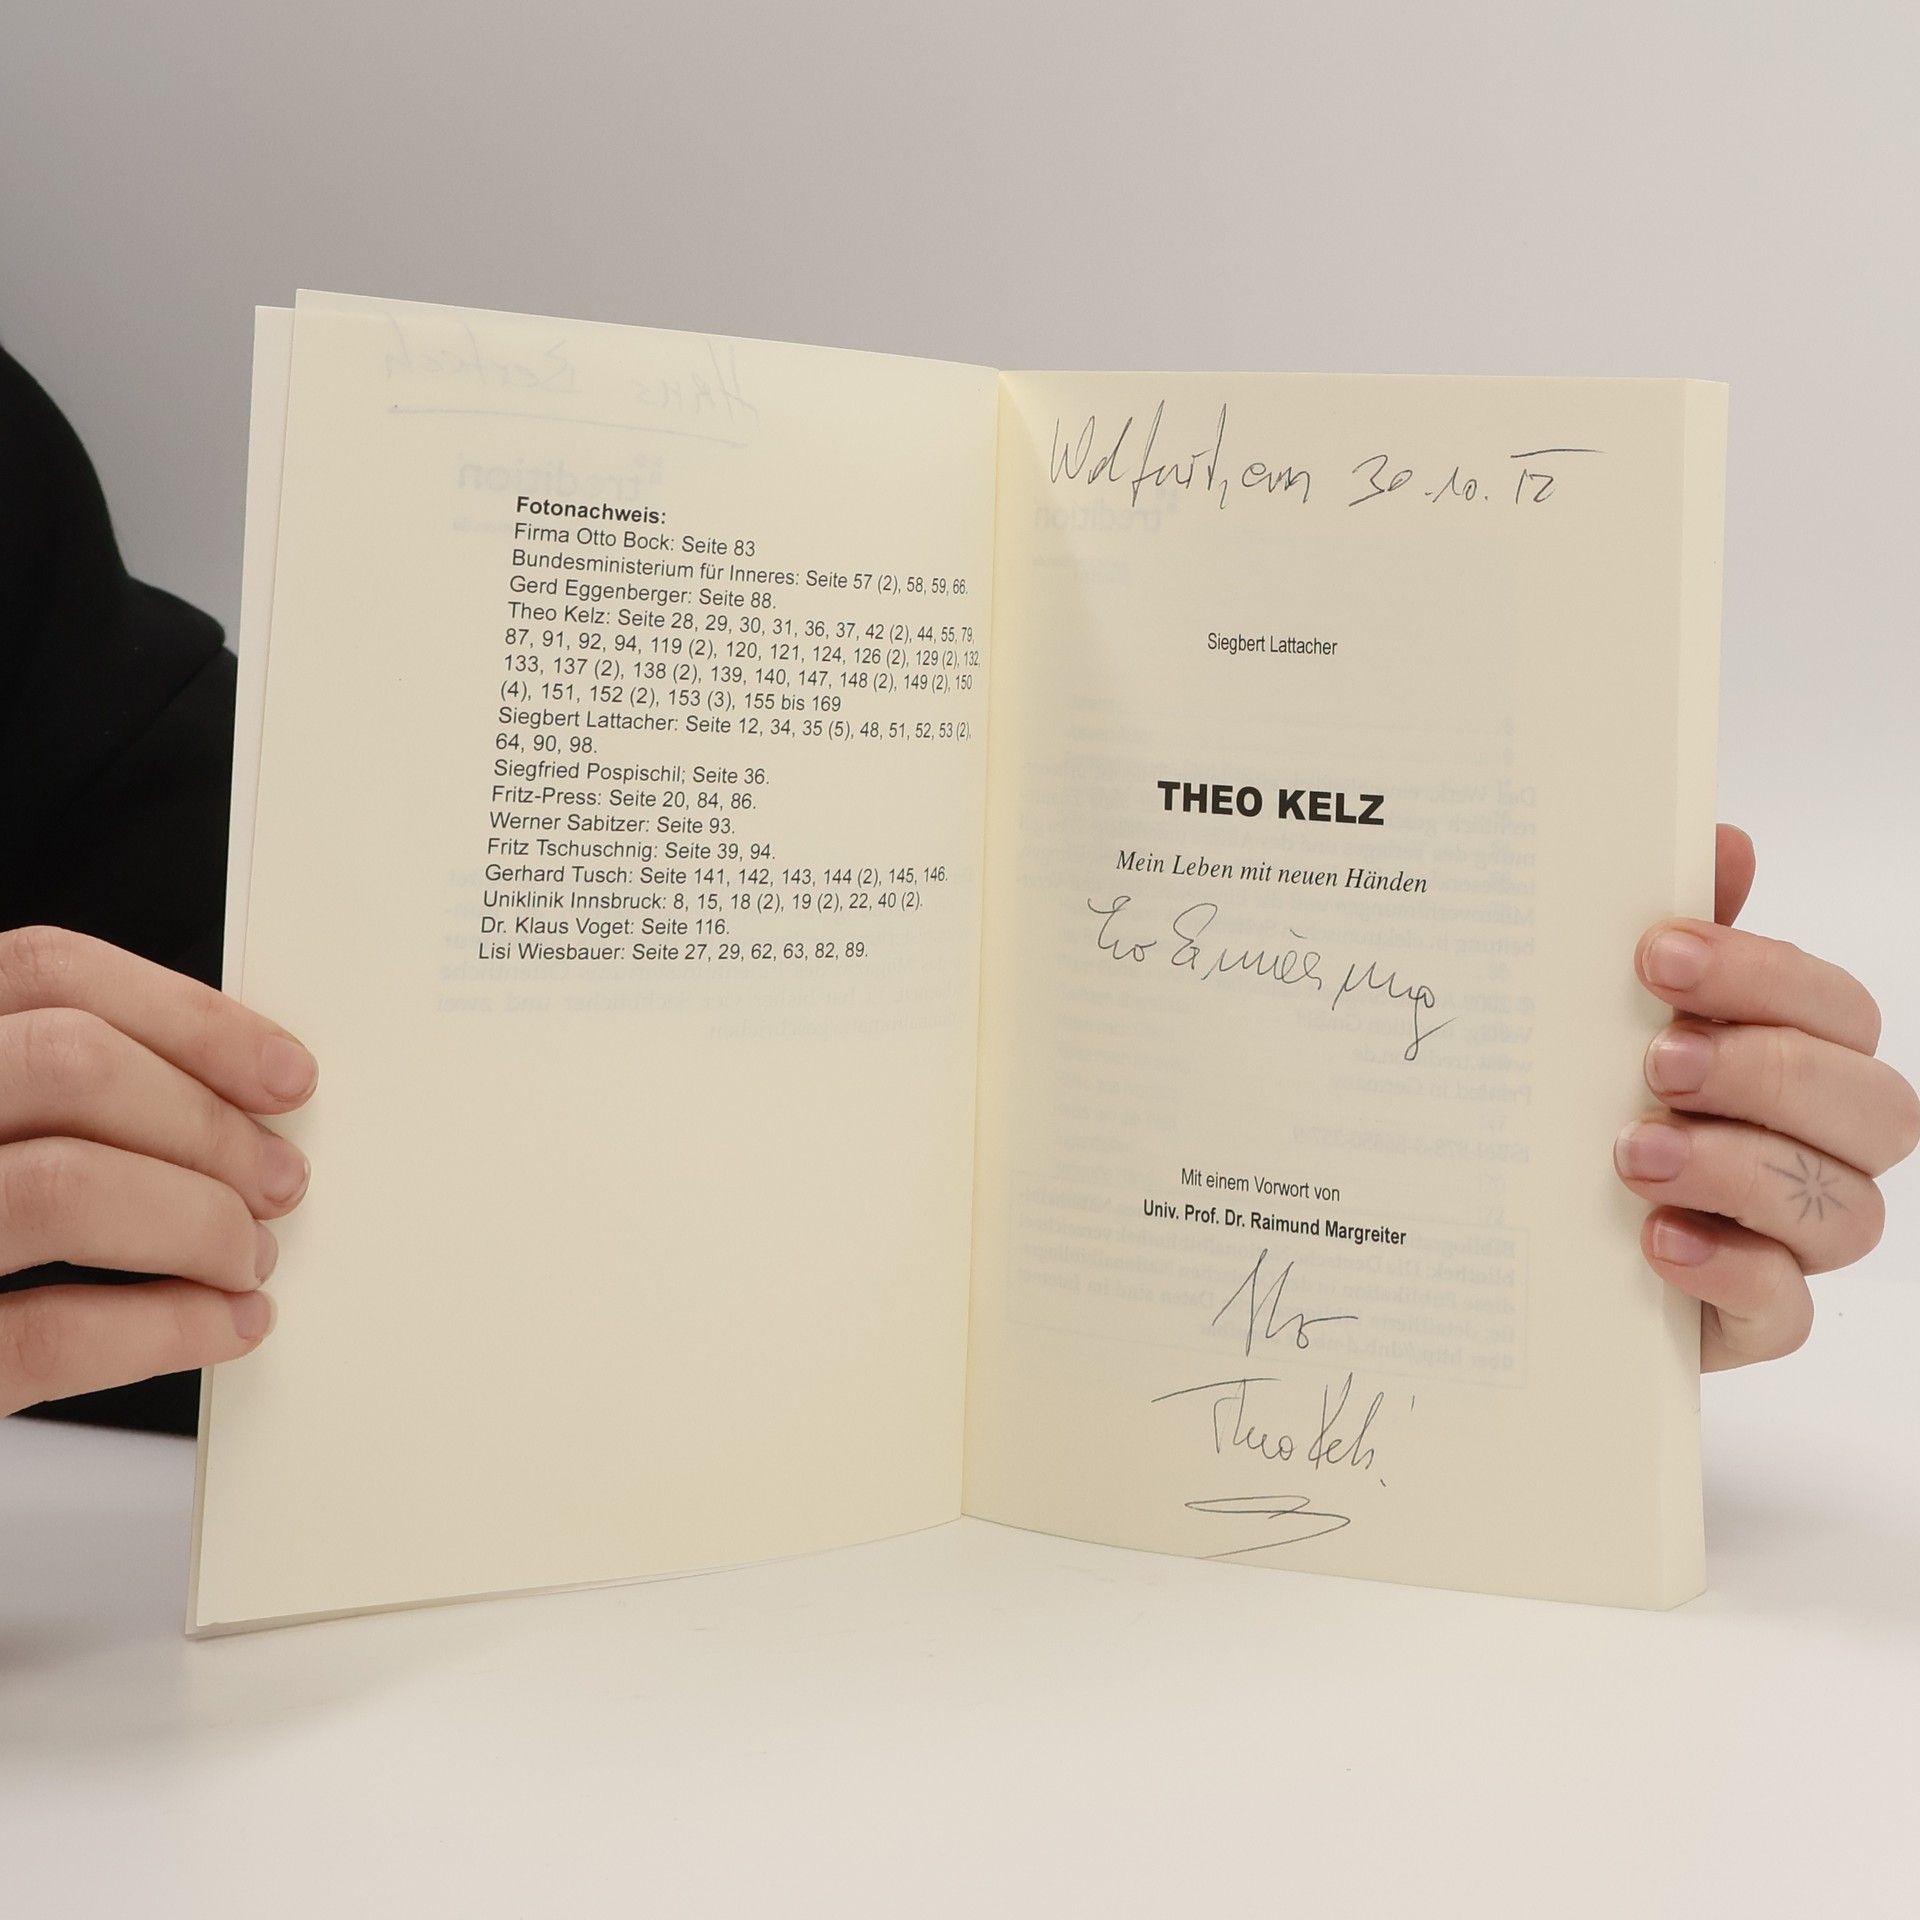 Fotonachweis:
Firma Otto Bock: Seite 83
Bundesministerium für Inneres: Seite 57 (2), 58, 59, 66.
Gerd Eggenberger: Seite 88.
Theo Kelz: Seite 28, 29, 30, 31, 36, 37, 42 (2), 44, 55, 79,
87, 91, 92, 94, 119 (2), 120, 121, 124, 126 (2), 129 (2), 132,
133, 137 (2), 138 (2), 139, 140, 147, 148 (2), 149 (2), 150
(4), 151, 152 (2), 153 (3), 155 bis 169
Siegbert Lattacher: Seite 12, 34, 35 (5), 48, 51, 52, 53 (2),
64, 90, 98.
Siegfried Pospischil; Seite 36.
Fritz-Press: Seite 20, 84, 86.
Werner Sabitzer: Seite 93.
Fritz Tschuschnig: Seite 39, 94.
Gerhard Tusch: Seite 141, 142, 143, 144 (2), 145, 146.
Uniklinik Innsbruck: 8, 15, 18 (2), 19 (2), 22, 40 (2).
Dr. Klaus Voget: Seite 116.
Lisi Wiesbauer: Seite 27, 29, 62, 63, 82, 89.
30.10.12
Siegbert Lattacher
THEO KELZ
Mein Leben mit neuen Händen
Mit einem Vorwort von
Univ. Prof. Dr. Raimund Margreiter
Theo Kelz